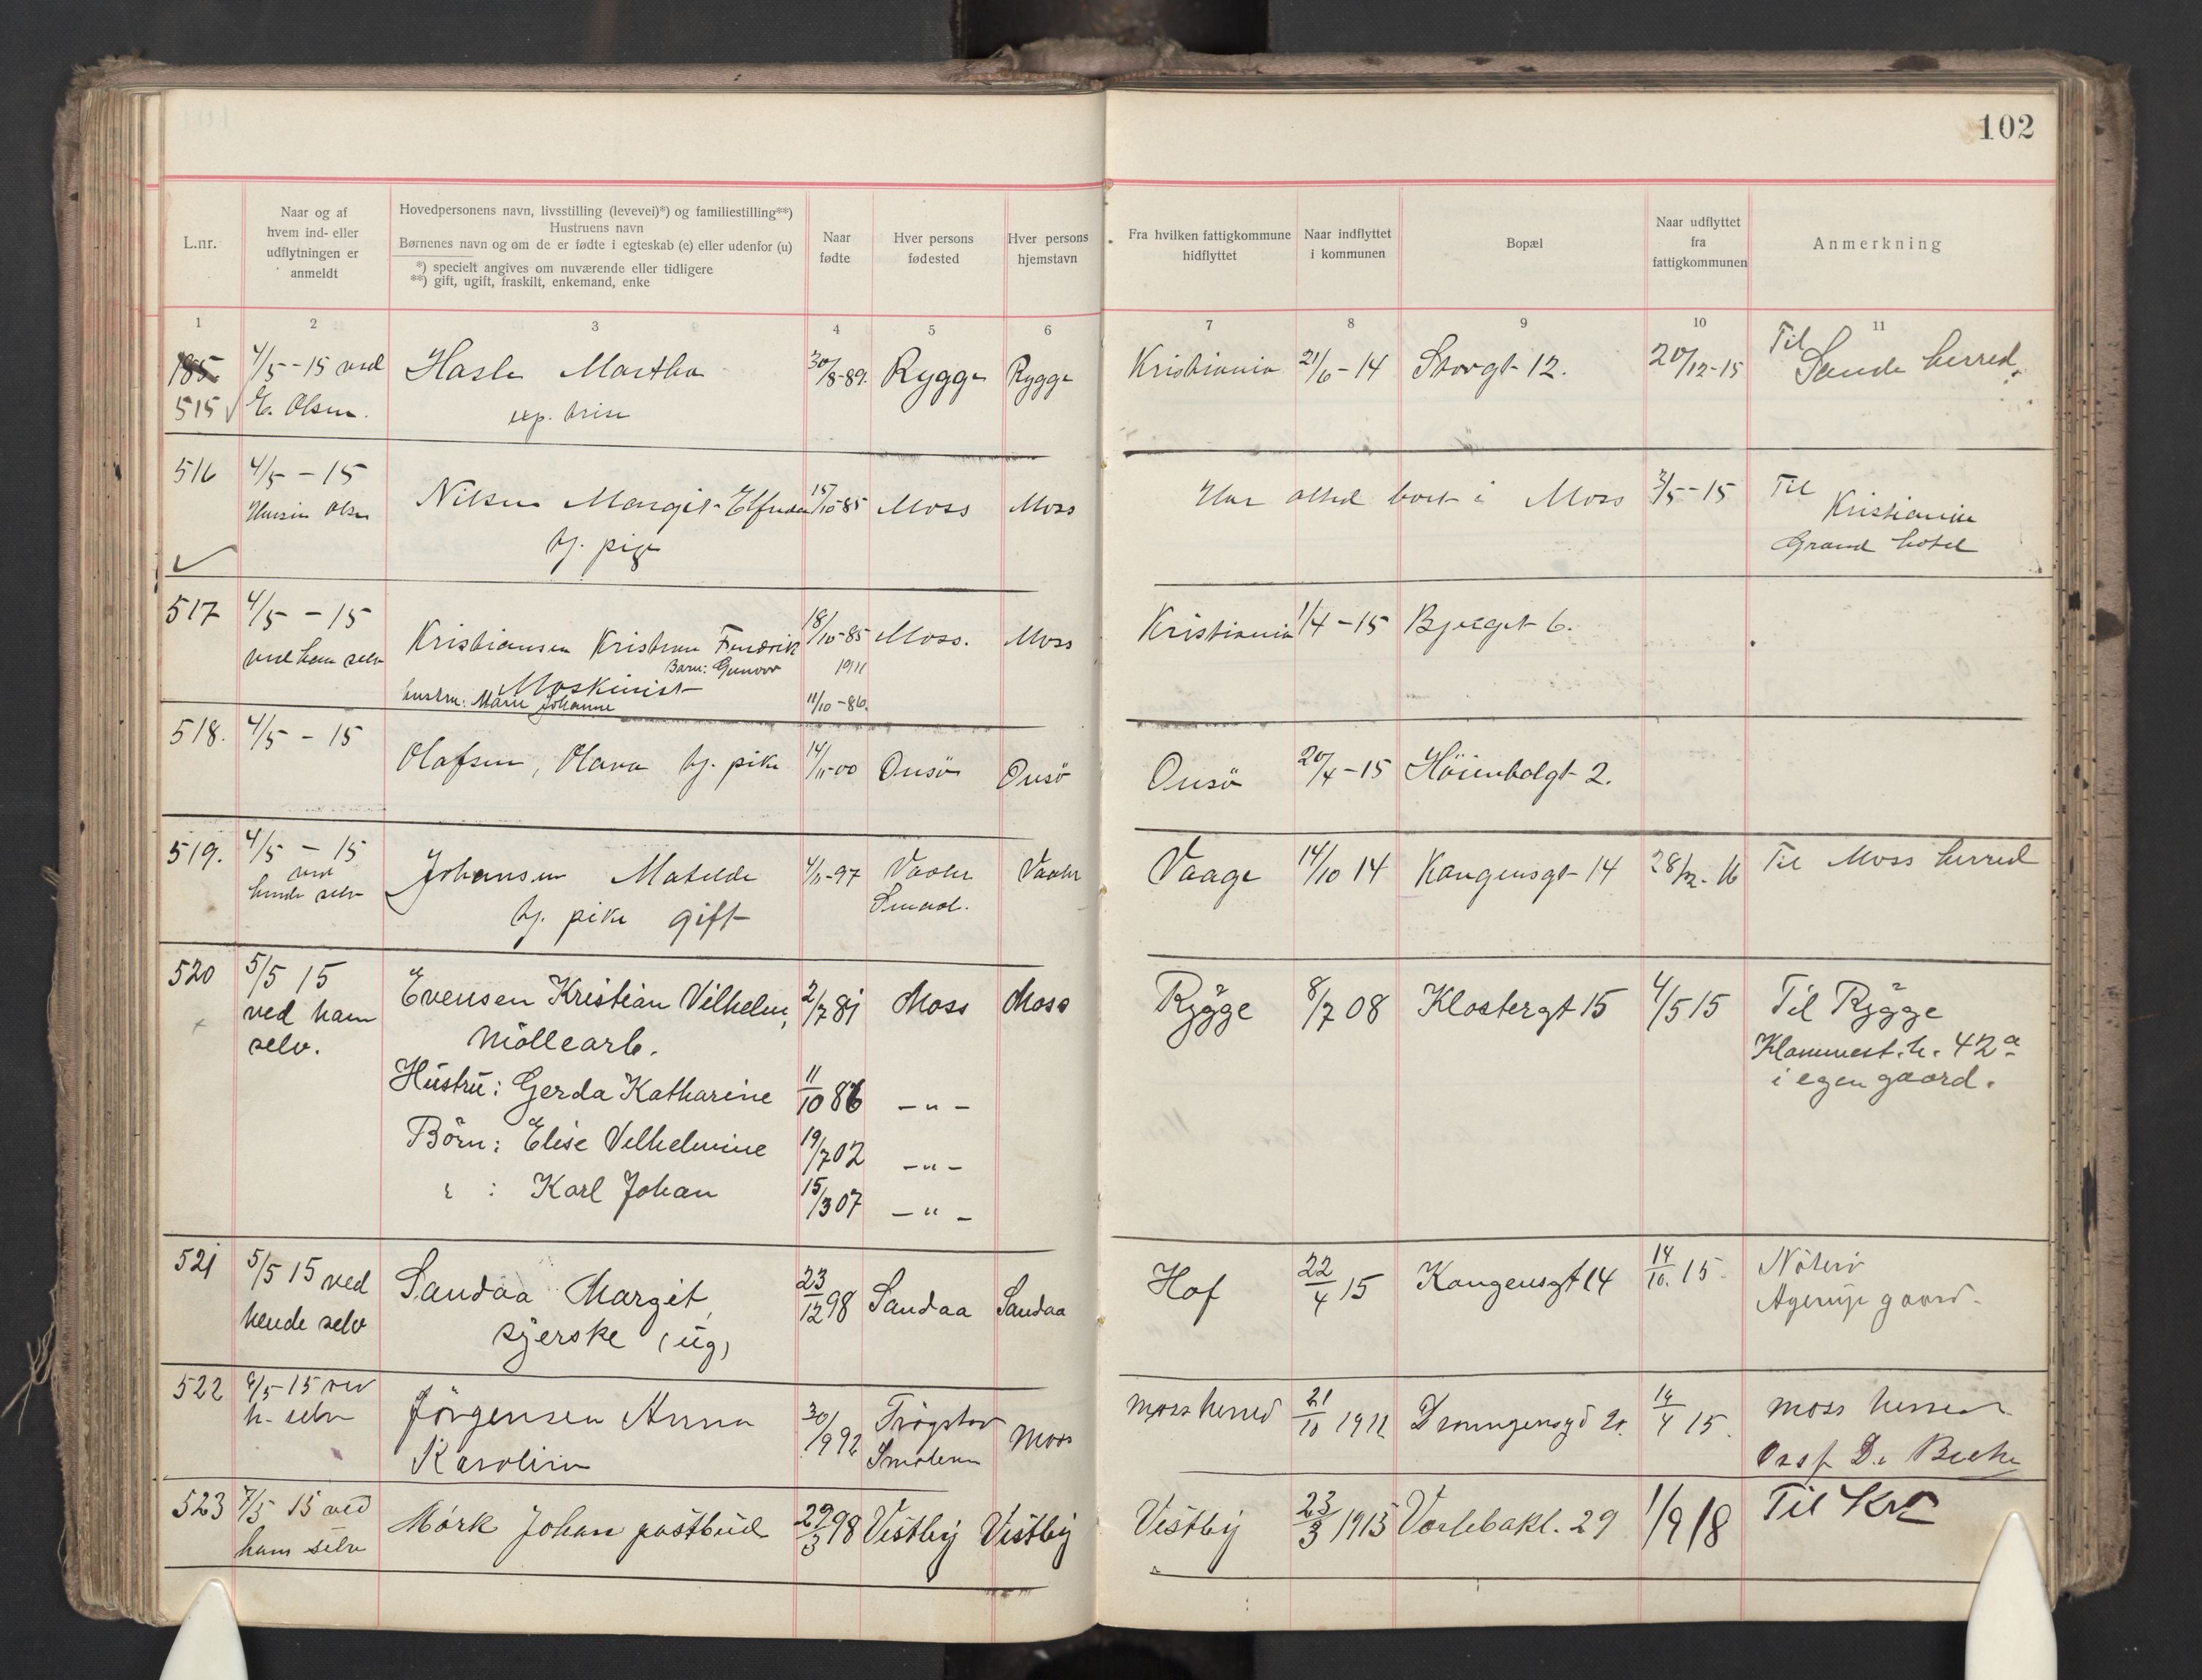 102
L.nr.
Naar og af hvem ind- eller udflytningen er anmeldt
Hovedpersonens navn, livsstilling (levevei)*) og familiestilling**)
Hustruens navn
Børnenes navn og om de er fødte i egteskab (e) eller udenfor (u)
*) specielt angives om nuværende eller tidligere
**) gift, ugift, fraskilt, enkemand, enke
Naar fødte
Hver persons fødested
Hver persons hjemstavn
Fra hvilken fattigkommune hidflyttet
Naar indflyttet i kommunen
Bopæl
Naar udflyttet fra fattigkommunen
Anmerkning
1 2 3 4 5 6 7 8 9 10 11
185 4/5-15 ved Hasle Martha 30/8-89. Rygge Rygge Kristiania 21/6-14 Storgt 12. 20/12-15 Til Sande herred.
515 E. Olsen.
516 4/5-15 Nilsen Margit 15/10-85 Moss Moss Har altid boet i Moss 3/5-15 Til Kristiania
Olsen tj. pige Grand hotel
517 4/5-15 Kristiansen Fredrik 18/10-85 Moss. Moss Kristiania 1/4-15 6.
ved ham selv Barn: Gunvor 1911
Maskinist
hustru: Marie Johanne 11/10-86.
518. 4/5-15 Olafsen, Olava tj. pike 14/11-00 Onsö Onsö Onsö 20/4-15 Höienholgt 2.
519. 4/5-15 Johansen Matilde 97 Vaaler Vaaler Vaage 14/10 14 Kongensgt 14 28/12-16 Til Moss herred
ved hende selv tj. pike gift Smaal.
520 5/5 15 Evensen Kristian Vilhelm, 2/7 81 Moss Moss Rygge 8/7 08 Klostergt 15 4/5 15 Til Rygge
ved ham selv. Möllearb. 42a
i egen gaard.
Hustru: Gerda Katharine 11/10 86 -"-
Börn: Elise Vilhelmine 19/7 02 -"-
" : Karl Johan 15/3 07 -"-
521 5/5 15 ved Sandaa Margit, 23/12 98 Sandaa Sandaa Hof 22/4 15 Kongensgt 14 14/10. 15. Nöterö
hende selv syerske (ug) gaard.
522 6/5-15 ved Jörgensen Anna 30/9 92 Trögstad Moss Moss herred 21/10 1912 20. 14/4 15. Moss herred
h. selv Karoline Smaalenene
523 7/5 15 ved Mörk Johan postbud 29/3 98 Vestby Vestby Vestby 23/3 1915 Vorlebakl. 29 1/9 18 Til Kra
ham selv